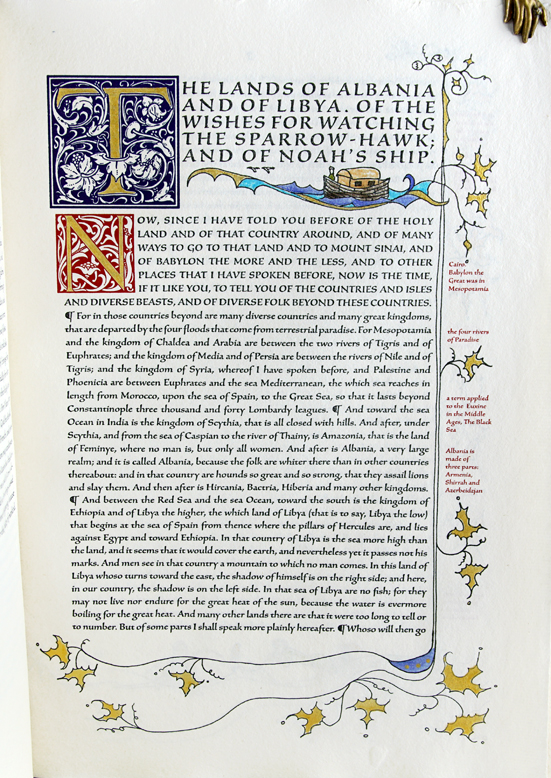 THE LANDS OF ALBANIA
AND OF LIBYA. OF THE
WISHES FOR WATCHING
THE SPARROW-HAWK;
AND OF NOAH'S SHIP.
NOW, SINCE I HAVE TOLD YOU BEFORE OF THE HOLY
LAND AND OF THAT COUNTRY AROUND, AND OF MANY
WAYS TO GO TO THAT LAND AND TO MOUNT SINAI, AND
OF BABYLON THE MORE AND THE LESS, AND TO OTHER
PLACES THAT I HAVE SPOKEN BEFORE, NOW IS THE TIME,
IF IT LIKE YOU, TO TELL YOU OF THE COUNTRIES AND ISLES
AND DIVERSE BEASTS, AND OF DIVERSE FOLK BEYOND THESE COUNTRIES.
¶ For in those countries beyond are many diverse countries and many great kingdoms,
that are departed by the four floods that come from terrestrial paradise. For Mesopotamia
and the kingdom of Chaldea and Arabia are between the two rivers of Tigris and of
Euphrates; and the kingdom of Media and of Persia are between the rivers of Nile and of
Tigris; and the kingdom of Syria, whereof I have spoken before, and Palestine and
Phoenicia are between Euphrates and the sea Mediterranean, the which sea reaches in
length from Morocco, upon the sea of Spain, to the Great Sea, so that it lasts beyond
Constantinople three thousand and forty Lombardy leagues. ¶ And toward the sea
Ocean in India is the kingdom of Scythia, that is all closed with hills. And after, under
Scythia, and from the sea of Caspian to the river of Thainy, is Amazonia, that is the land
of Feminye, where no man is, but only all women. And after is Albania, a very large
realm; and it is called Albania, because the folk are whiter there than in other countries
thereabout: and in that country are hounds so great and so strong, that they assail lions
and slay them. And then after is Hircania, Bactria, Hiberia and many other kingdoms.
¶ And between the Red Sea and the sea Ocean, toward the south is the kingdom of
Ethiopia and of Libya the higher, the which land of Libya (that is to say, Libya the low)
that begins at the sea of Spain from thence where the pillars of Hercules are, and lies
against Egypt and toward Ethiopia. In that country of Libya is the sea more high than
the land, and it seems that it would cover the earth, and nevertheless yet it passes not his
marks. And men see in that country a mountain to which no man comes. In this land of
Libya whoso turns toward the east, the shadow of himself is on the right side; and here,
in our country, the shadow is on the left side. In that sea of Libya are no fish; for they
may not live nor endure for the great heat of the sun, because the water is evermore
boiling for the great heat. And many other lands there are that it were too long to tell or
to number. But of some parts I shall speak more plainly hereafter. ¶ Whoso will then go
Cairo.
Babylon the
Great was in
Mesopotamia
the four rivers
of Paradise
a term applied
to the Euxine
in the Middle
Ages, The Black
Sea
Albania is
made of
three parts:
Armenia,
Shirvah and
Azerbeidejan